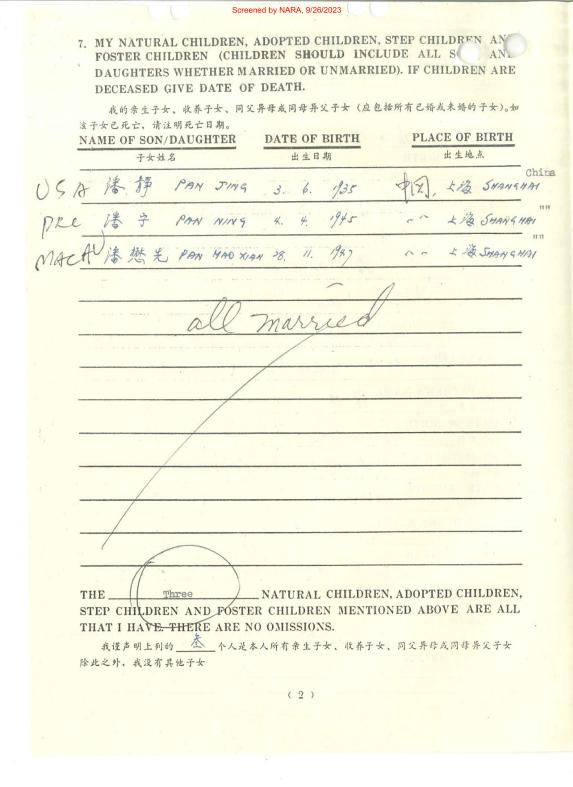 Screened by NARA, 9/26/2023
7. MY NATURAL CHILDREN, ADOPTED CHILDREN, STEP CHILDREN AND
FOSTER CHILDREN (CHILDREN SHOULD INCLUDE ALL S AND
DAUGHTERS WHETHER MARRIED OR UNMARRIED). IF CHILDREN ARE
DECEASED GIVE DATE OF DEATH.
我的亲生子女、收养子女、同父异母或同母异父子女（应包括所有已婚或未婚的子女）。如
该子女已死亡，请注明死亡日期。
NAME OF SON/DAUGHTER DATE OF BIRTH PLACE OF BIRTH
子女姓名 出生日期 出生地点
China
USA 潘静 PAN JING 3. 6. 1935 中国, 上海 SHANGHAI
PRC 潘宁 PAN NING 4. 4. 1945 〃 上海 SHANGHAI ""
MACAU 潘懋先 PAN MAO XIAN 28. 11. 1947 〃 上海 SHANGHAI ""
all married
THE Three NATURAL CHILDREN, ADOPTED CHILDREN,
STEP CHILDREN AND FOSTER CHILDREN MENTIONED ABOVE ARE ALL
THAT I HAVE. THERE ARE NO OMISSIONS.
我谨声明上列的 叁 个人是本人所有亲生子女、收养子女、同父异母或同母异父子女
除此之外，我没有其他子女
( 2 )